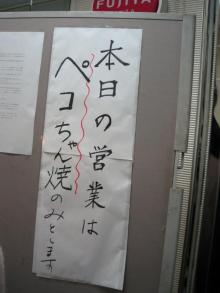 FUJIYA
本日の営業は
ペコちゃん焼のみとします